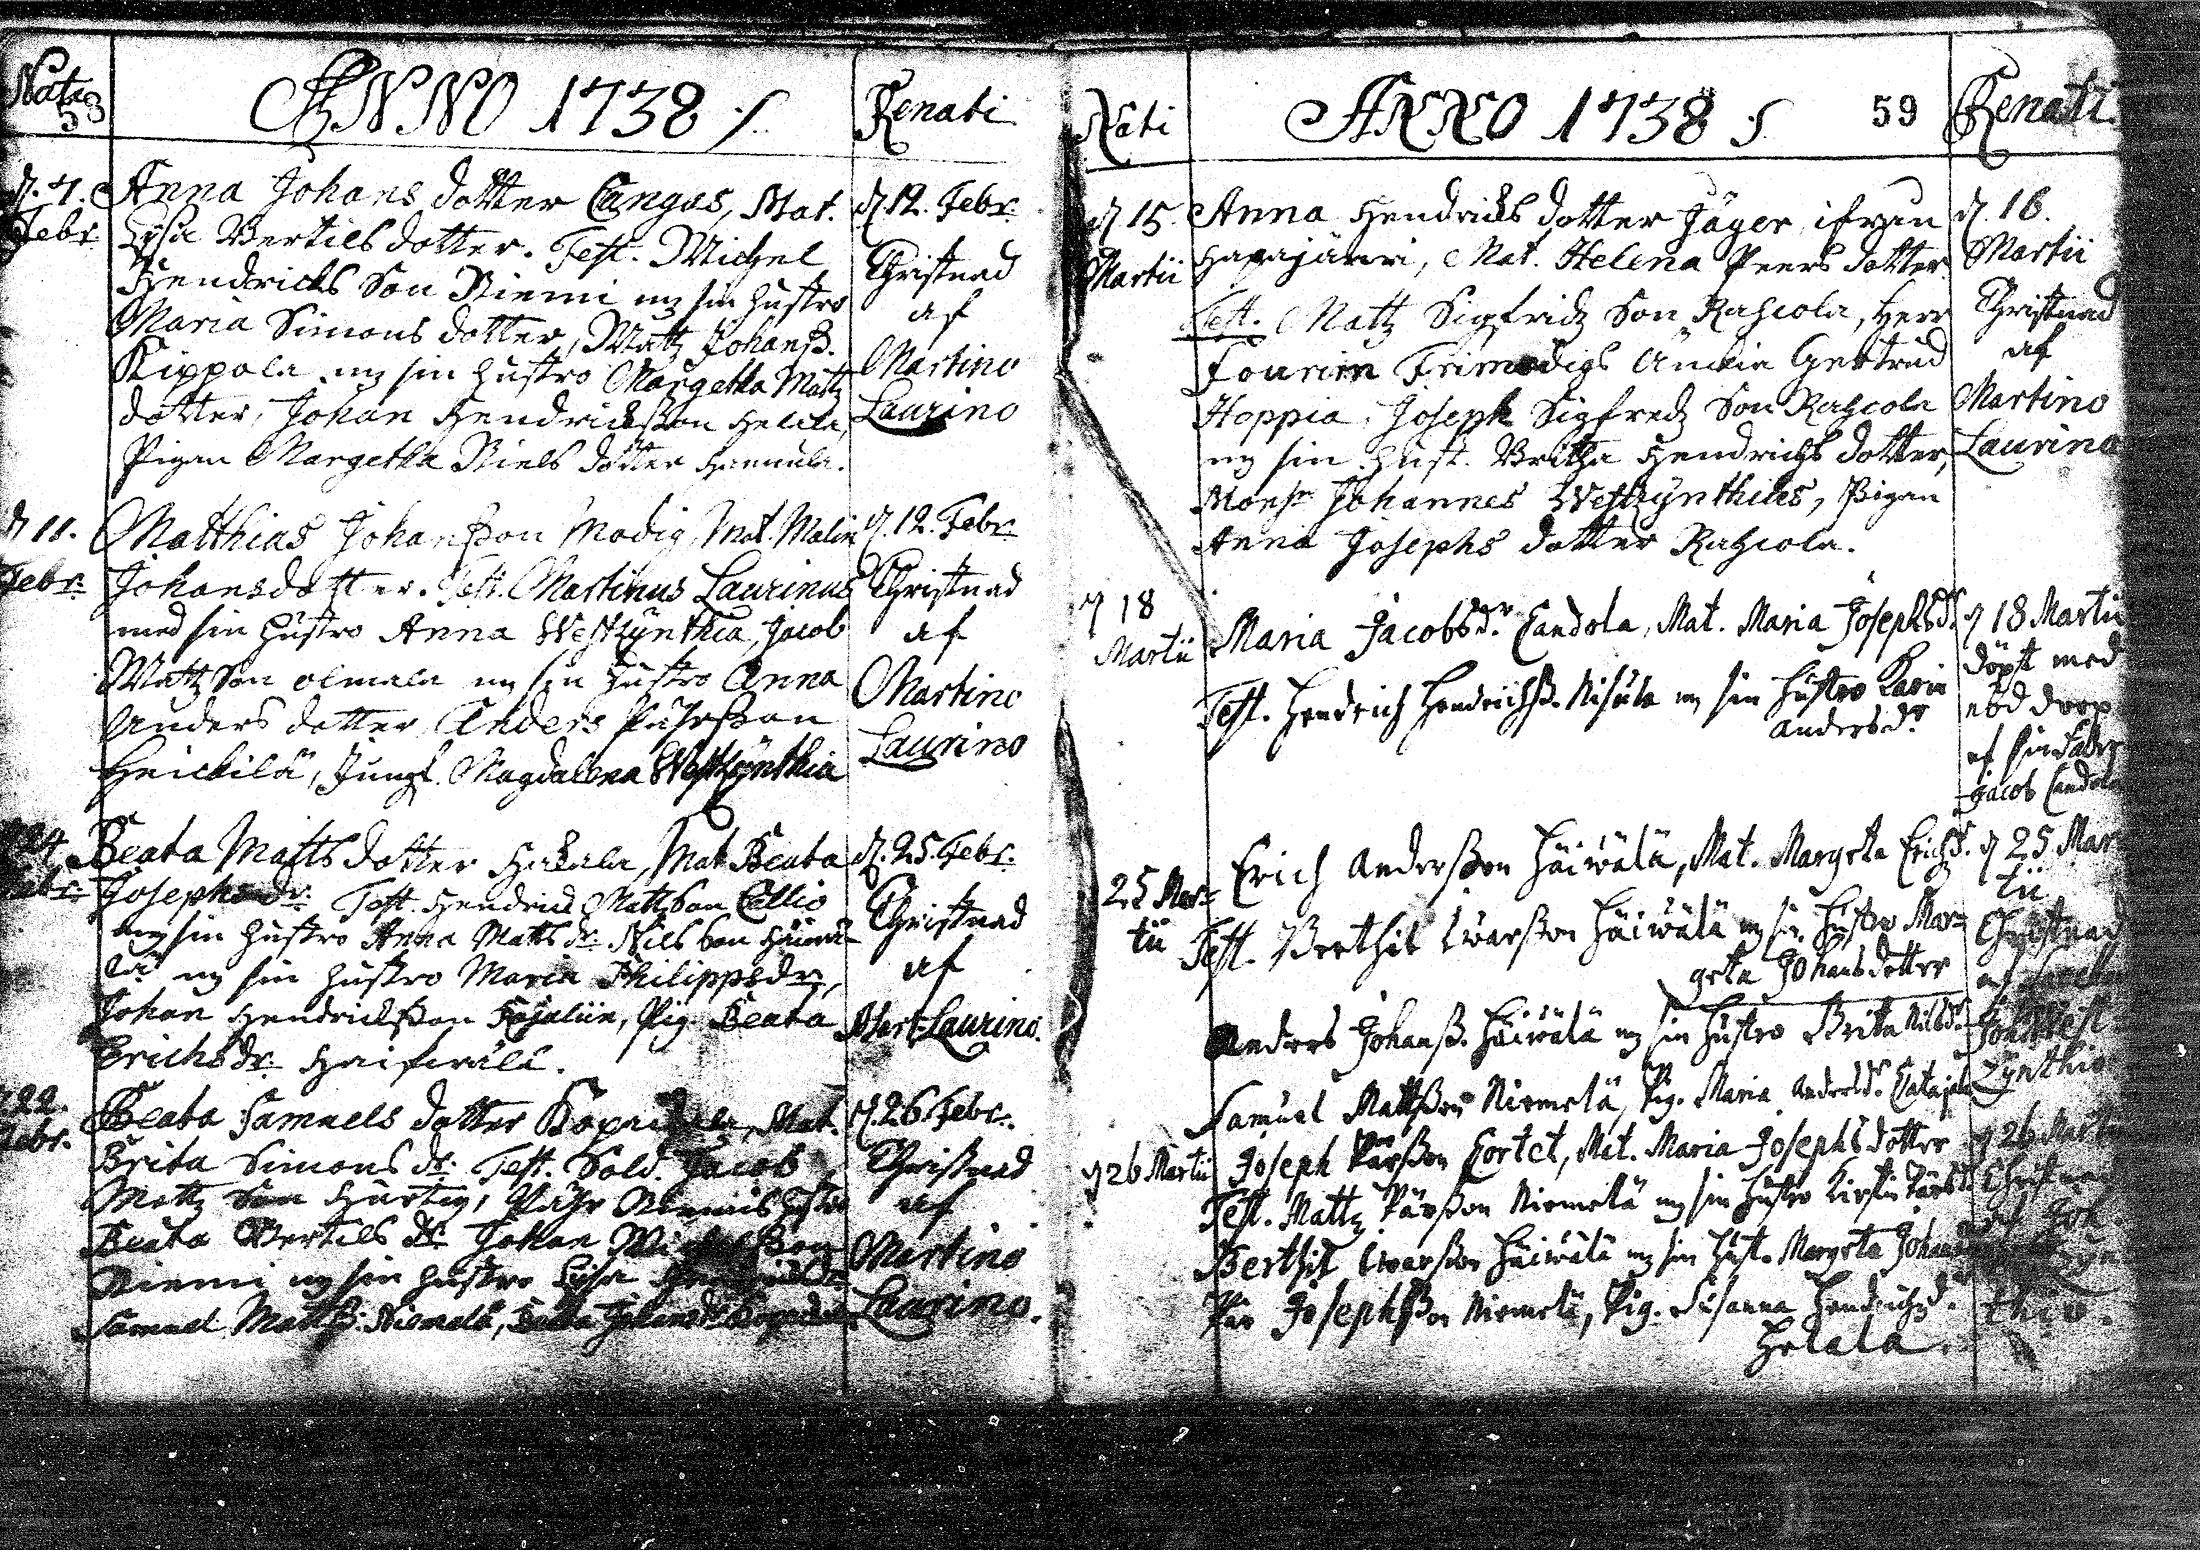 Nati
58
ANNO 1738
Renati
d. 7.
Febr.
Anna Johans dotter Cangas, Mat.
Lysa Bertils dotter. Test. Michel
Hendrichs Son Niemi mz sin hustro
Maria Simons dotter, Matz Johanß.
Kippola mz sin hustro Margetha Matz
dotter, Johan Hendrichßon Helala,
Pigan Margetha Niels dotter
d. 12. Febr.
Christnad
af
Martino
Laurino
d 11.
Febr.
Matthias Johanßon Modig, Mat. Malin
Johansdotter. Test. Martinus Laurinus
med sin hustro Anna Westzynthia, Jacob
Matz Son olmala mz sin hustro Anna
Anders dotter, Anders Påhrßon
Heickilä, Jungf. Magdalena Westzynthia
d. 12. Febr.
Christnad
af
Martino
Laurino
24
Febr.
Beata Matts dotter Hakala, Mat. Beata
Josephs dr. Test. Hendrich Matz Son Callio
mz sin hustro Anna Matts dr. Nils Son
mz sin hustro Maria Philipps dr,
Johan Hendrichßon Pig. Beata
Erichs dr.
d. 25. Febr.
Christnad
af
Mart. Laurino.
22.
Febr.
Beata Samuels dotter Mat.
Brita Simons dr. Test. Sold. Jacob
Matz Son Hurtig, Påhr
Beata Bertils dr. Johan
Niemi mz sin hustro Lysa
Samuel Mattß. Niemelä,
d. 26. Febr.
Christnad
af
Martino
Laurino.
Nati
ANNO 1738
59
Renati.
d 15
Martii
Anna Hendrichs dotter Jäger, ifrån
Haapajärvi, Mat. Helena Peers dotter
Test. Matz Sigfridz Son Rahcola, Herr
Fourirn Frimodigs Änkia Gertrud
Hoppia, Joseph Sigfredz Son Rahcola
mz sin Hust. Britha Hendrichs dotter,
Monsr Johannes Westzynthius, Pigan
Anna Josephs dotter Rahcola.
d. 16.
Martii
Christnad
af
Martino
Laurino
d 18
Martii
Maria Jacobs dr. Candola, Mat. Maria Josephs dr.
Test. Hendrich Hendrichß. Nisula mz sin hustro Karin
Anders dr.
d 18 Martii
döpt med
nöd doop
af sin fader
Jacob Candola
25 Mar=
tii
Erich Anderßon Häiwälä, Mat. Margeta Erichs dr.
Test. Berthil Iwarßon Häiwälä mz sin hustro Mar=
geta Johans dotter
Anders Johanß. Häiwälä mz sin hustro Brita Nilsdr.
Samuel Mattßon Niemelä, Pig. Maria Andersdr.
d 25 Mar=
tii
Christnad
af
Joh. West=
zynthio
d 26 Martii
Joseph Pärßon Cortet, Mat. Maria Josephs dotter
Test. Mattz Pärßon Niemelä mz sin hustro Kirstin
Berthil Iwarßon Häiwälä mz sin Hust. Margeta Johans
Pär Josephßon Niemelä, Pig. Susanna Hendrichs dr.
Helala.
d 26 Martii
Christnad
af Joh.
thio.